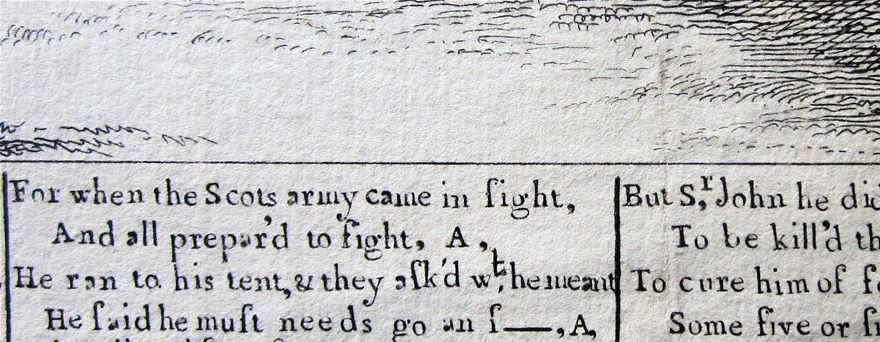 For when the Scots army came in ſight,
And all prepar'd to fight, A,
He ran to his tent, & they aſk'd wt. he meant
He ſaid he muſt needs go an ſ——, A,
But Sr. John he did
To be kill'd th
To cure him of fe
Some five or ſi